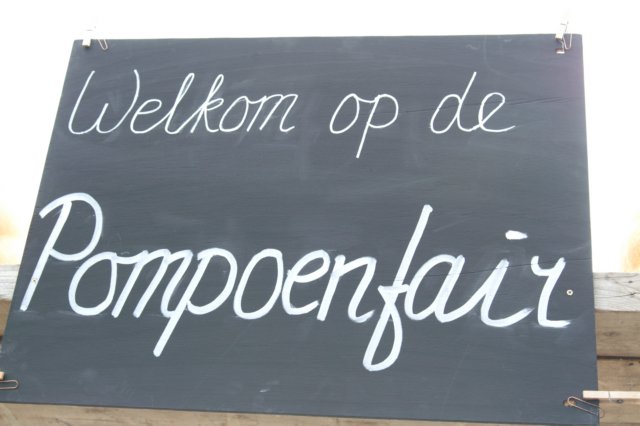 Welkom op de
Pompoenfair